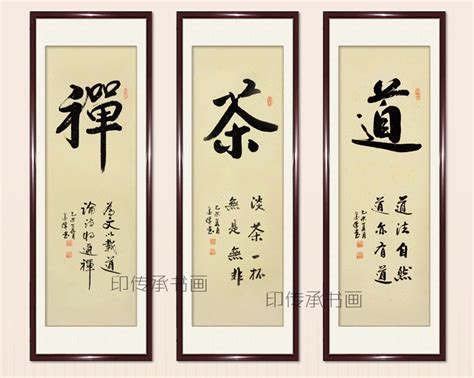 禪
為文以載道
論詩將通禪
印传承书画
茶
淡茶一杯
無是無非
印传承书画
道
道法自然
道亦有道